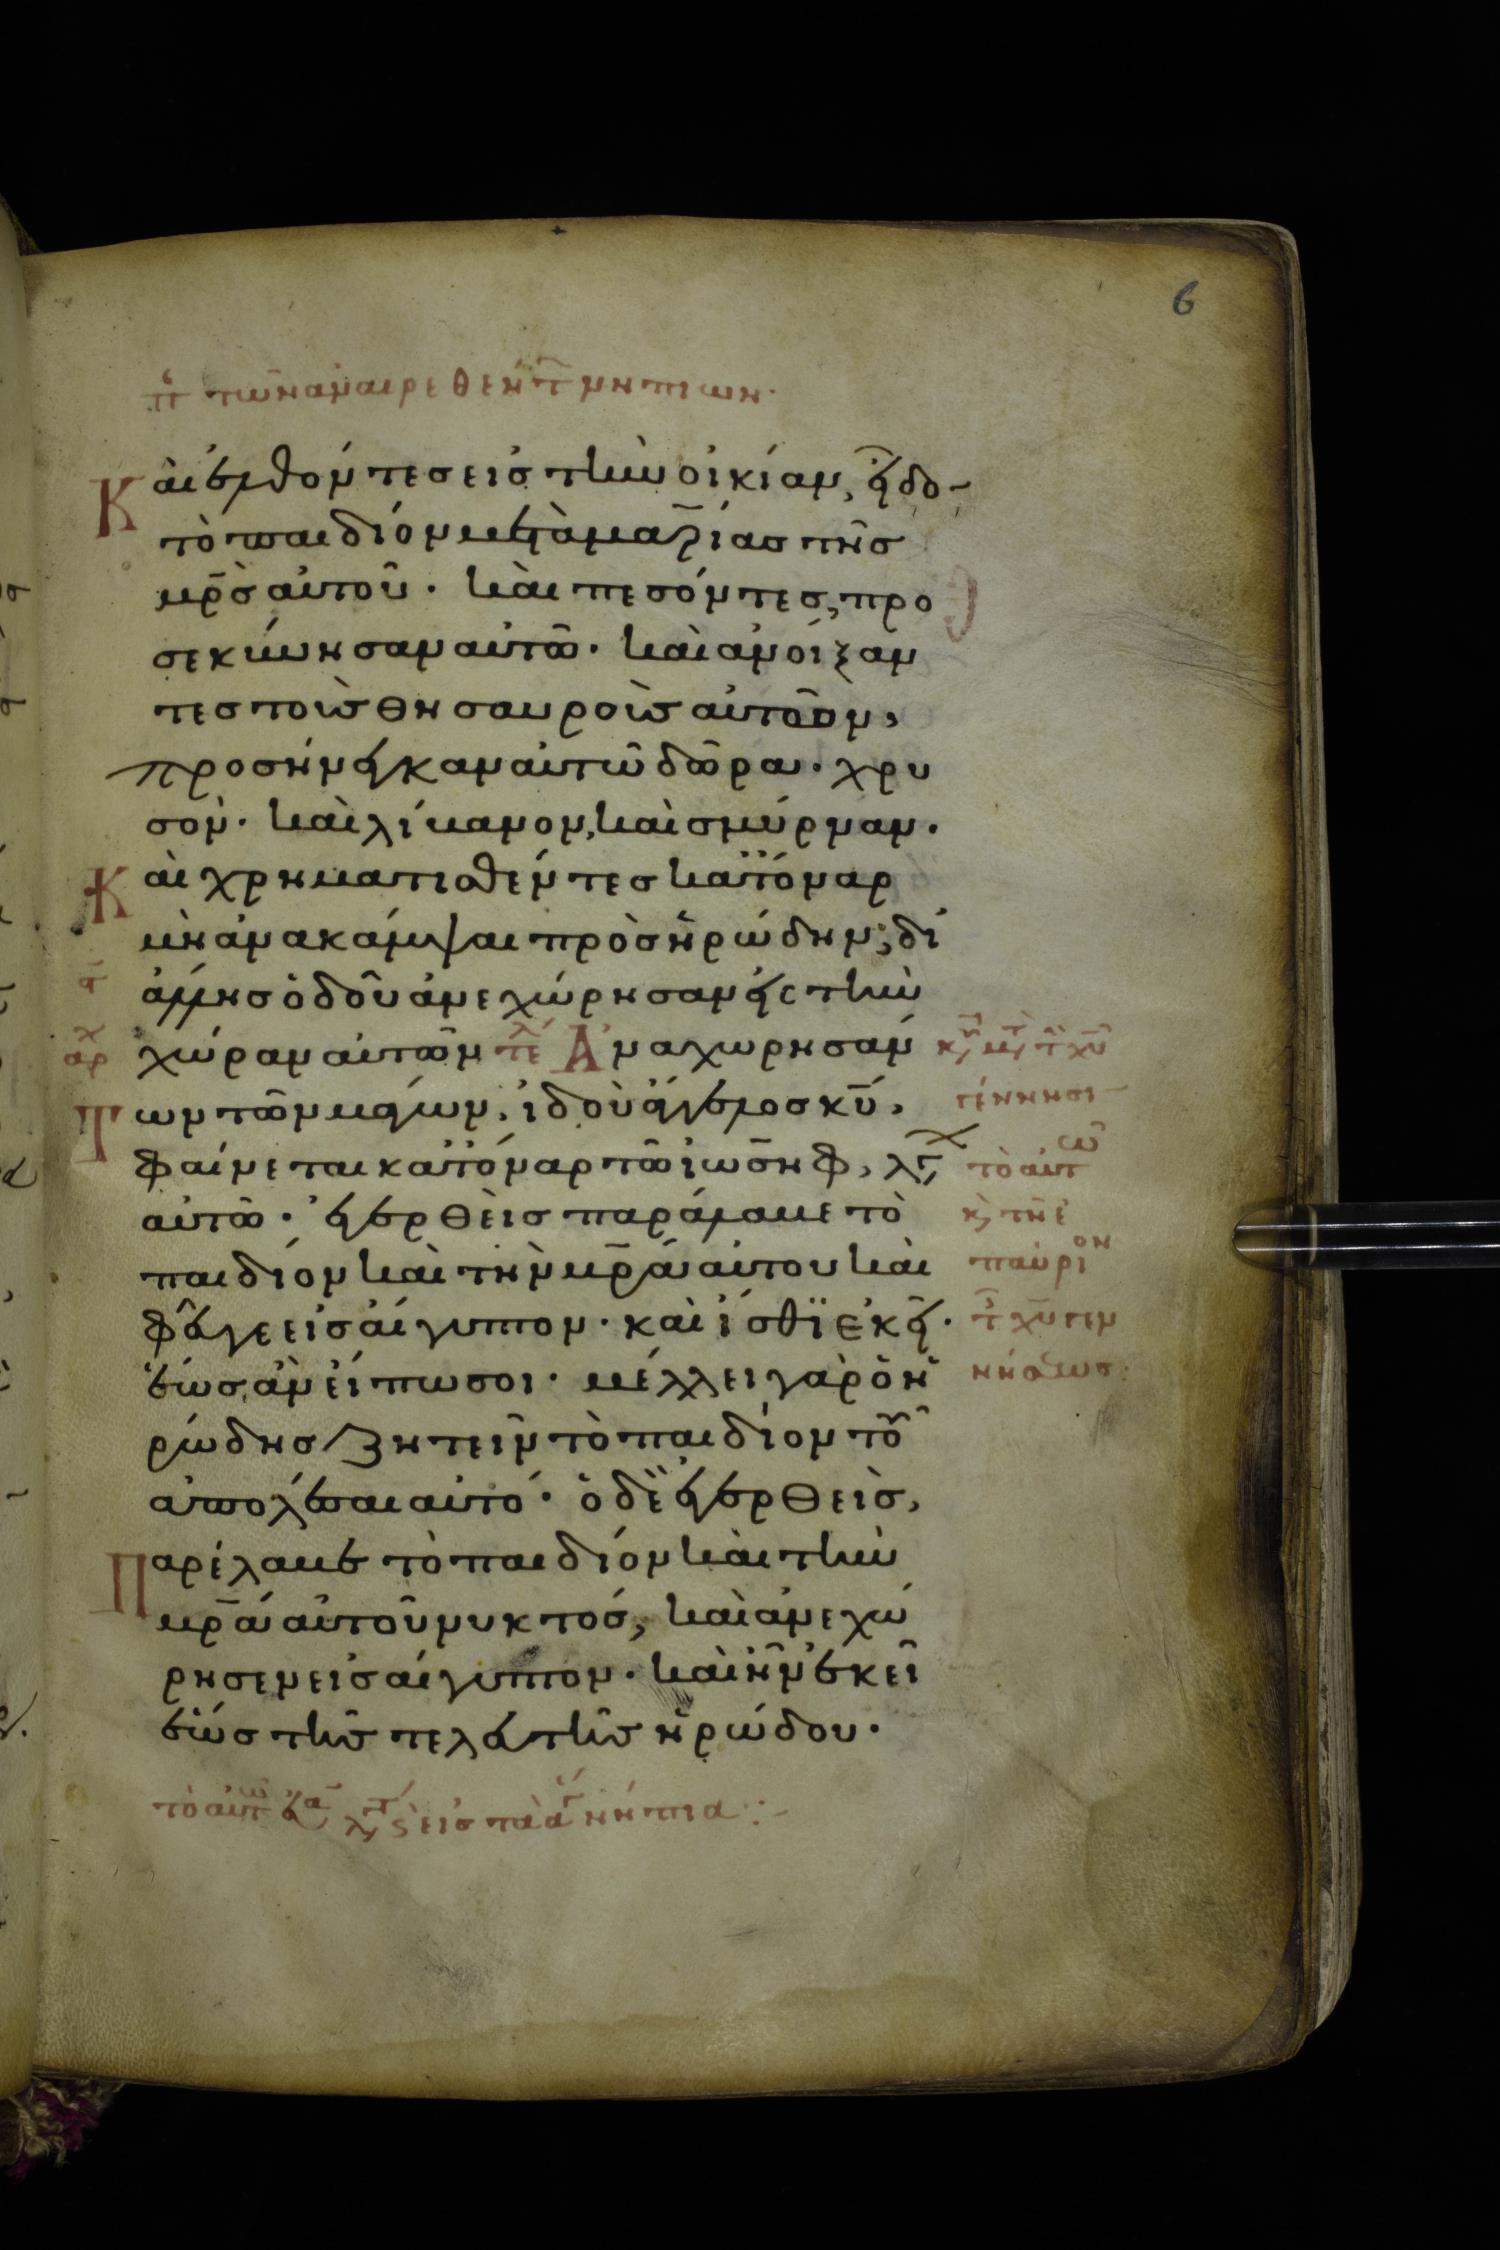 6
πε των αναιρεθεντ νηπιων·
Καὶ ἐλθόντες εἰς τὴν οἰκίαν, εἶδο-
τὸ παιδίον μετὰ μαρίας τῆς
μρ̅ς αὐτοῦ· καὶ πεσόντες, προ
σεκύνησαν αὐτῶ· καὶ ἀνοίξαν
τες τοὺς θησαυροὺς αὐτῶν,
προσήνεγκαν αὐτῶ δῶρα· χρυ
σὸν· καὶ λίβανον, καὶ σμύρναν·
Καὶ χρηματισθέντες κατ' όναρ
μὴ ἀνακάμψαι πρὸς ἡρώδην, δι'
ἄλλης ὁδοῦ ἀνεχώρησαν εἰς τὴν
χώραν αὐτῶν τε̅λ Ἀναχωρησάν
Των τῶν μάγων, ἰδοὺ ἄγγελος κ̅υ,
φαίνεται κατ' όναρ τῶ ἰωσὴφ, λέγ
αὐτῶ· ἐγερθεὶς παράλαβε τὸ
παιδίον καὶ τὴν μρ̅α αὐτου καὶ
φεῦγε εἰς αἴγυπτον· καὶ ἴσθϊ ἐκεῖ·
ἕως ἂν εἴπω σοι· μέλλει γὰρ ὁ ἡ
ρώδης ζητεῖν τὸ παιδίον τοῦ
ἀπολέσαι αὐτό· ὁ δὲ ἐγερθεὶς,
Παρέλαβε τὸ παιδίον καὶ τὴν
μρ̅α αὐτοῦ νυκτός, καὶ ἀνεχώ
ρησεν εἰς αἴγυπτον· καὶ ἦν ἐκεῖ
ἕως τῆς τελευτῆς ἡρώδου·
ἀρχ
γέννησι
τὸ αὐτ
κ τῆ ἐ
παύριον
τ χ̅υ γεν
νήσεως·
τὸ αὐτ εἰς τὰ ἅγ νήπια:-